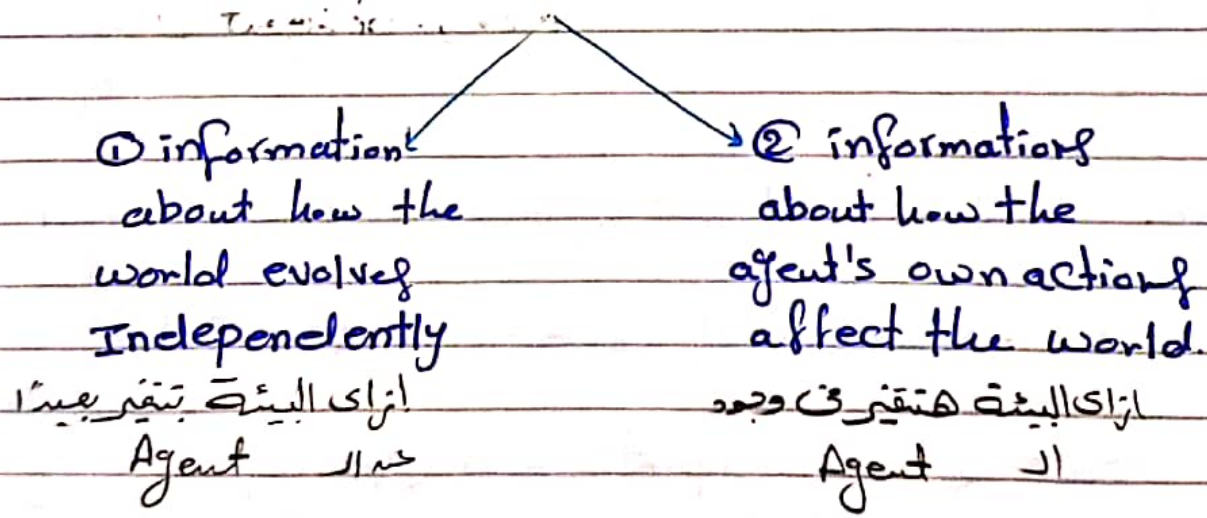 ① information
about how the
world evolves
Independently
ازاى البيئة بتتغير بعيدًا
عن الـ Agent
② informations
about how the
agent's own actions
affect the world.
ازاى البيئة هتتغير فى وجود
الـ Agent